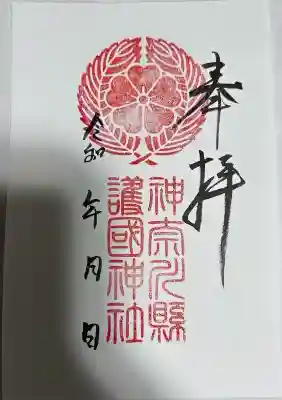 奉拝
神奈川縣
護國神社
令和 年 月 日